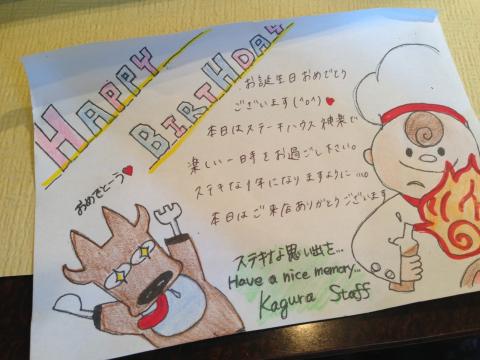 HAPPY
BIRTHDAY
お誕生日おめでとう
ございます(^o^)♥
本日はステーキハウス神楽で
楽しい一日寺をお過ごし下さい。
ステキな1年になりますように…。
本日はご来店ありがとうございます
おめでとーう♥
ステキな思い出を…
Have a nice memory...
Kagura Staff